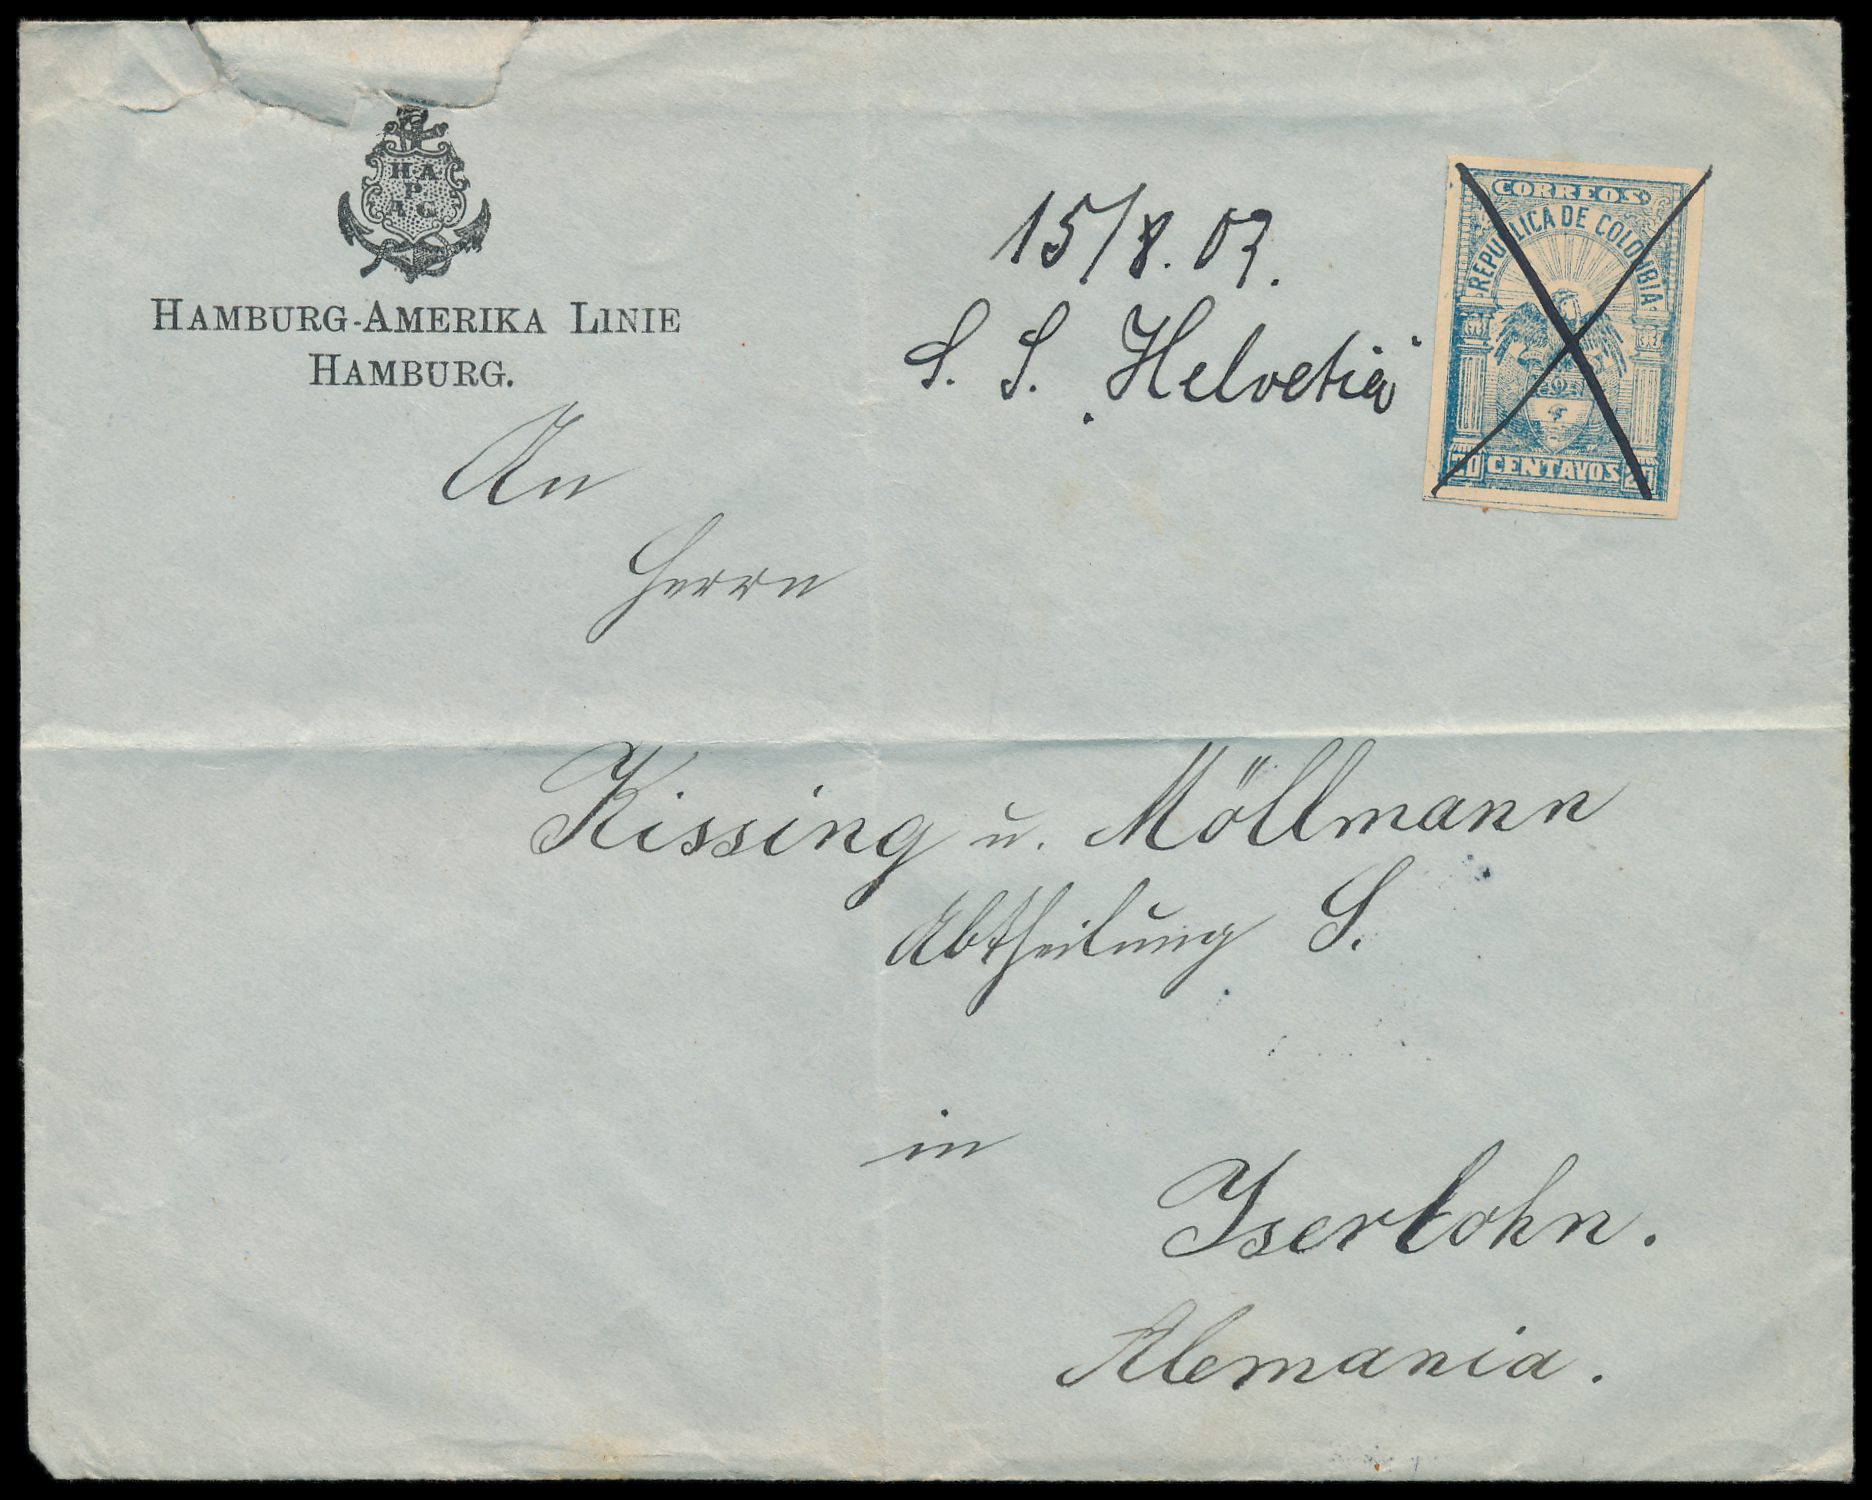 HAPAG
HAMBURG-AMERIKA LINIE
HAMBURG.
15/8. 03.
S. S. Helvetia
CORREOS
REPUBLICA DE COLOMBIA
20 CENTAVOS 20
An
Herrn
Kissing u. Möllmann
Abtheilung S.
in
Iserlohn.
Alemania.